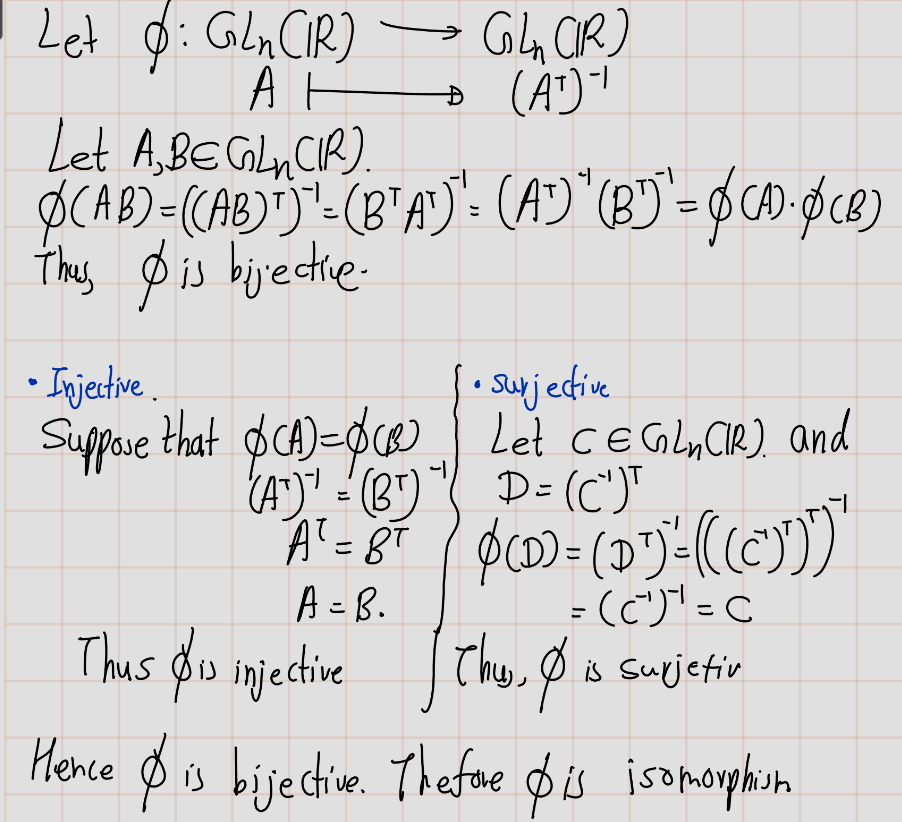 Let ϕ: GLn(IR) ⟶ GLn(IR)
A ⟼ (Aᵀ)⁻¹
Let A,B∈GLn(IR).
ϕ(AB)=((AB)ᵀ)⁻¹=(BᵀAᵀ)⁻¹=(Aᵀ)⁻¹(Bᵀ)⁻¹=ϕ(A)·ϕ(B)
Thus, ϕ is bijective.
• Injective.
Suppose that ϕ(A)=ϕ(B)
(Aᵀ)⁻¹=(Bᵀ)⁻¹
Aᵀ=Bᵀ
A=B.
Thus ϕ is injective
• surjective
Let C∈GLn(IR). and
D=(C⁻¹)ᵀ
ϕ(D)=(Dᵀ)⁻¹=(((C⁻¹)ᵀ)ᵀ)⁻¹
=(C⁻¹)⁻¹=C
Thus, ϕ is surjetiv
Hence ϕ is bijective. Thefore ϕ is isomorphism